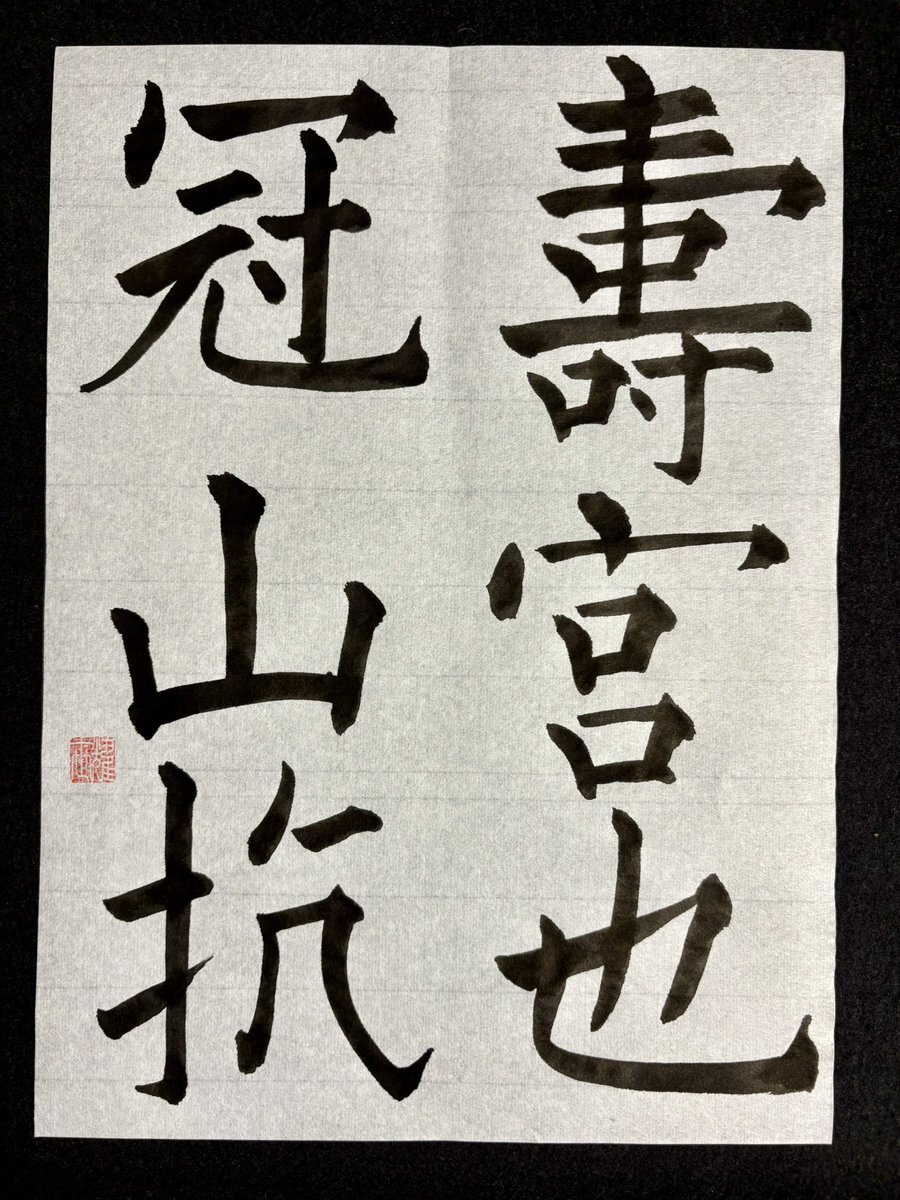 壽宮也
冠山抗